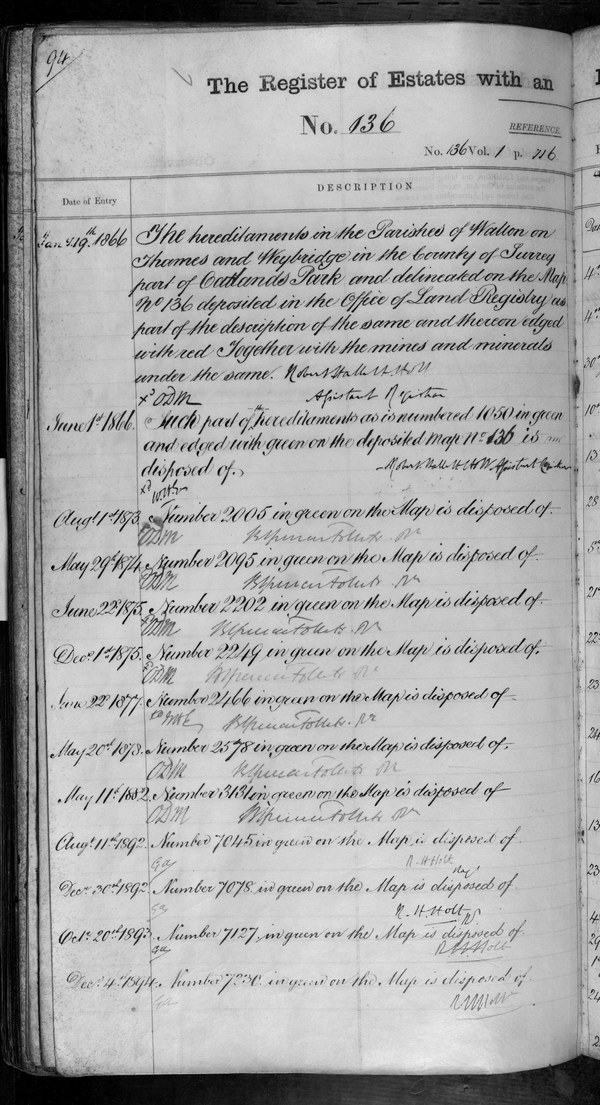 94
The Register of Estates with an
No. 136
REFERENCE.
No. 136 Vol. 1 p. 716
Date of Entry DESCRIPTION
Jany 19th 1866 The hereditaments in the Parishes of Walton on
Thames and Weybridge in the County of Surrey
part of Oatlands Park and delineated on the Map
No 136 deposited in the Office of Land Registry as
part of the description of the same and thereon edged
with red Together with the mines and minerals
under the same. Robert Hallett Holt
xd ODM Assistant Registrar
June 1st 1866. Such part of the hereditaments as is numbered 1050 in green
and edged with green on the deposited map No 136 is
disposed of. Robert Hallett Holt Assistant Registrar
xd
Augt 1st 1873. Number 2005 in green on the Map is disposed of.
ODM BSpencer Follett.
May 29th 1874. Number 2095 in green on the Map is disposed of.
ODM BSpencer Follett.
June 22d 1875. Number 2202 in green on the Map is disposed of.
ODM BSpencer Follett.
Decr 1st 1875. Number 2249 in green on the Map is disposed of.
ODM BSpencer Follett.
June 22d 1877. Number 2466 in green on the Map is disposed of.
BSpencer Follett.
May 20th 1878. Number 2578 in green on the Map is disposed of.
ODM BSpencer Follett.
May 11th 1882. Number 3131 in green on the Map is disposed of
ODM BSpencer Follett.
Augt 11th 1892. Number 7045 in green on the Map is disposed of
R. H. Holt
Decr 30th 1892. Number 7078, in green on the Map is disposed of
R. H. Holt
Octr 20th 1893. Number 7127, in green on the Map is disposed of
R. H. Holt
Decr 4th 1894. Number 7230 in green on the Map is disposed of
R. H. Holt